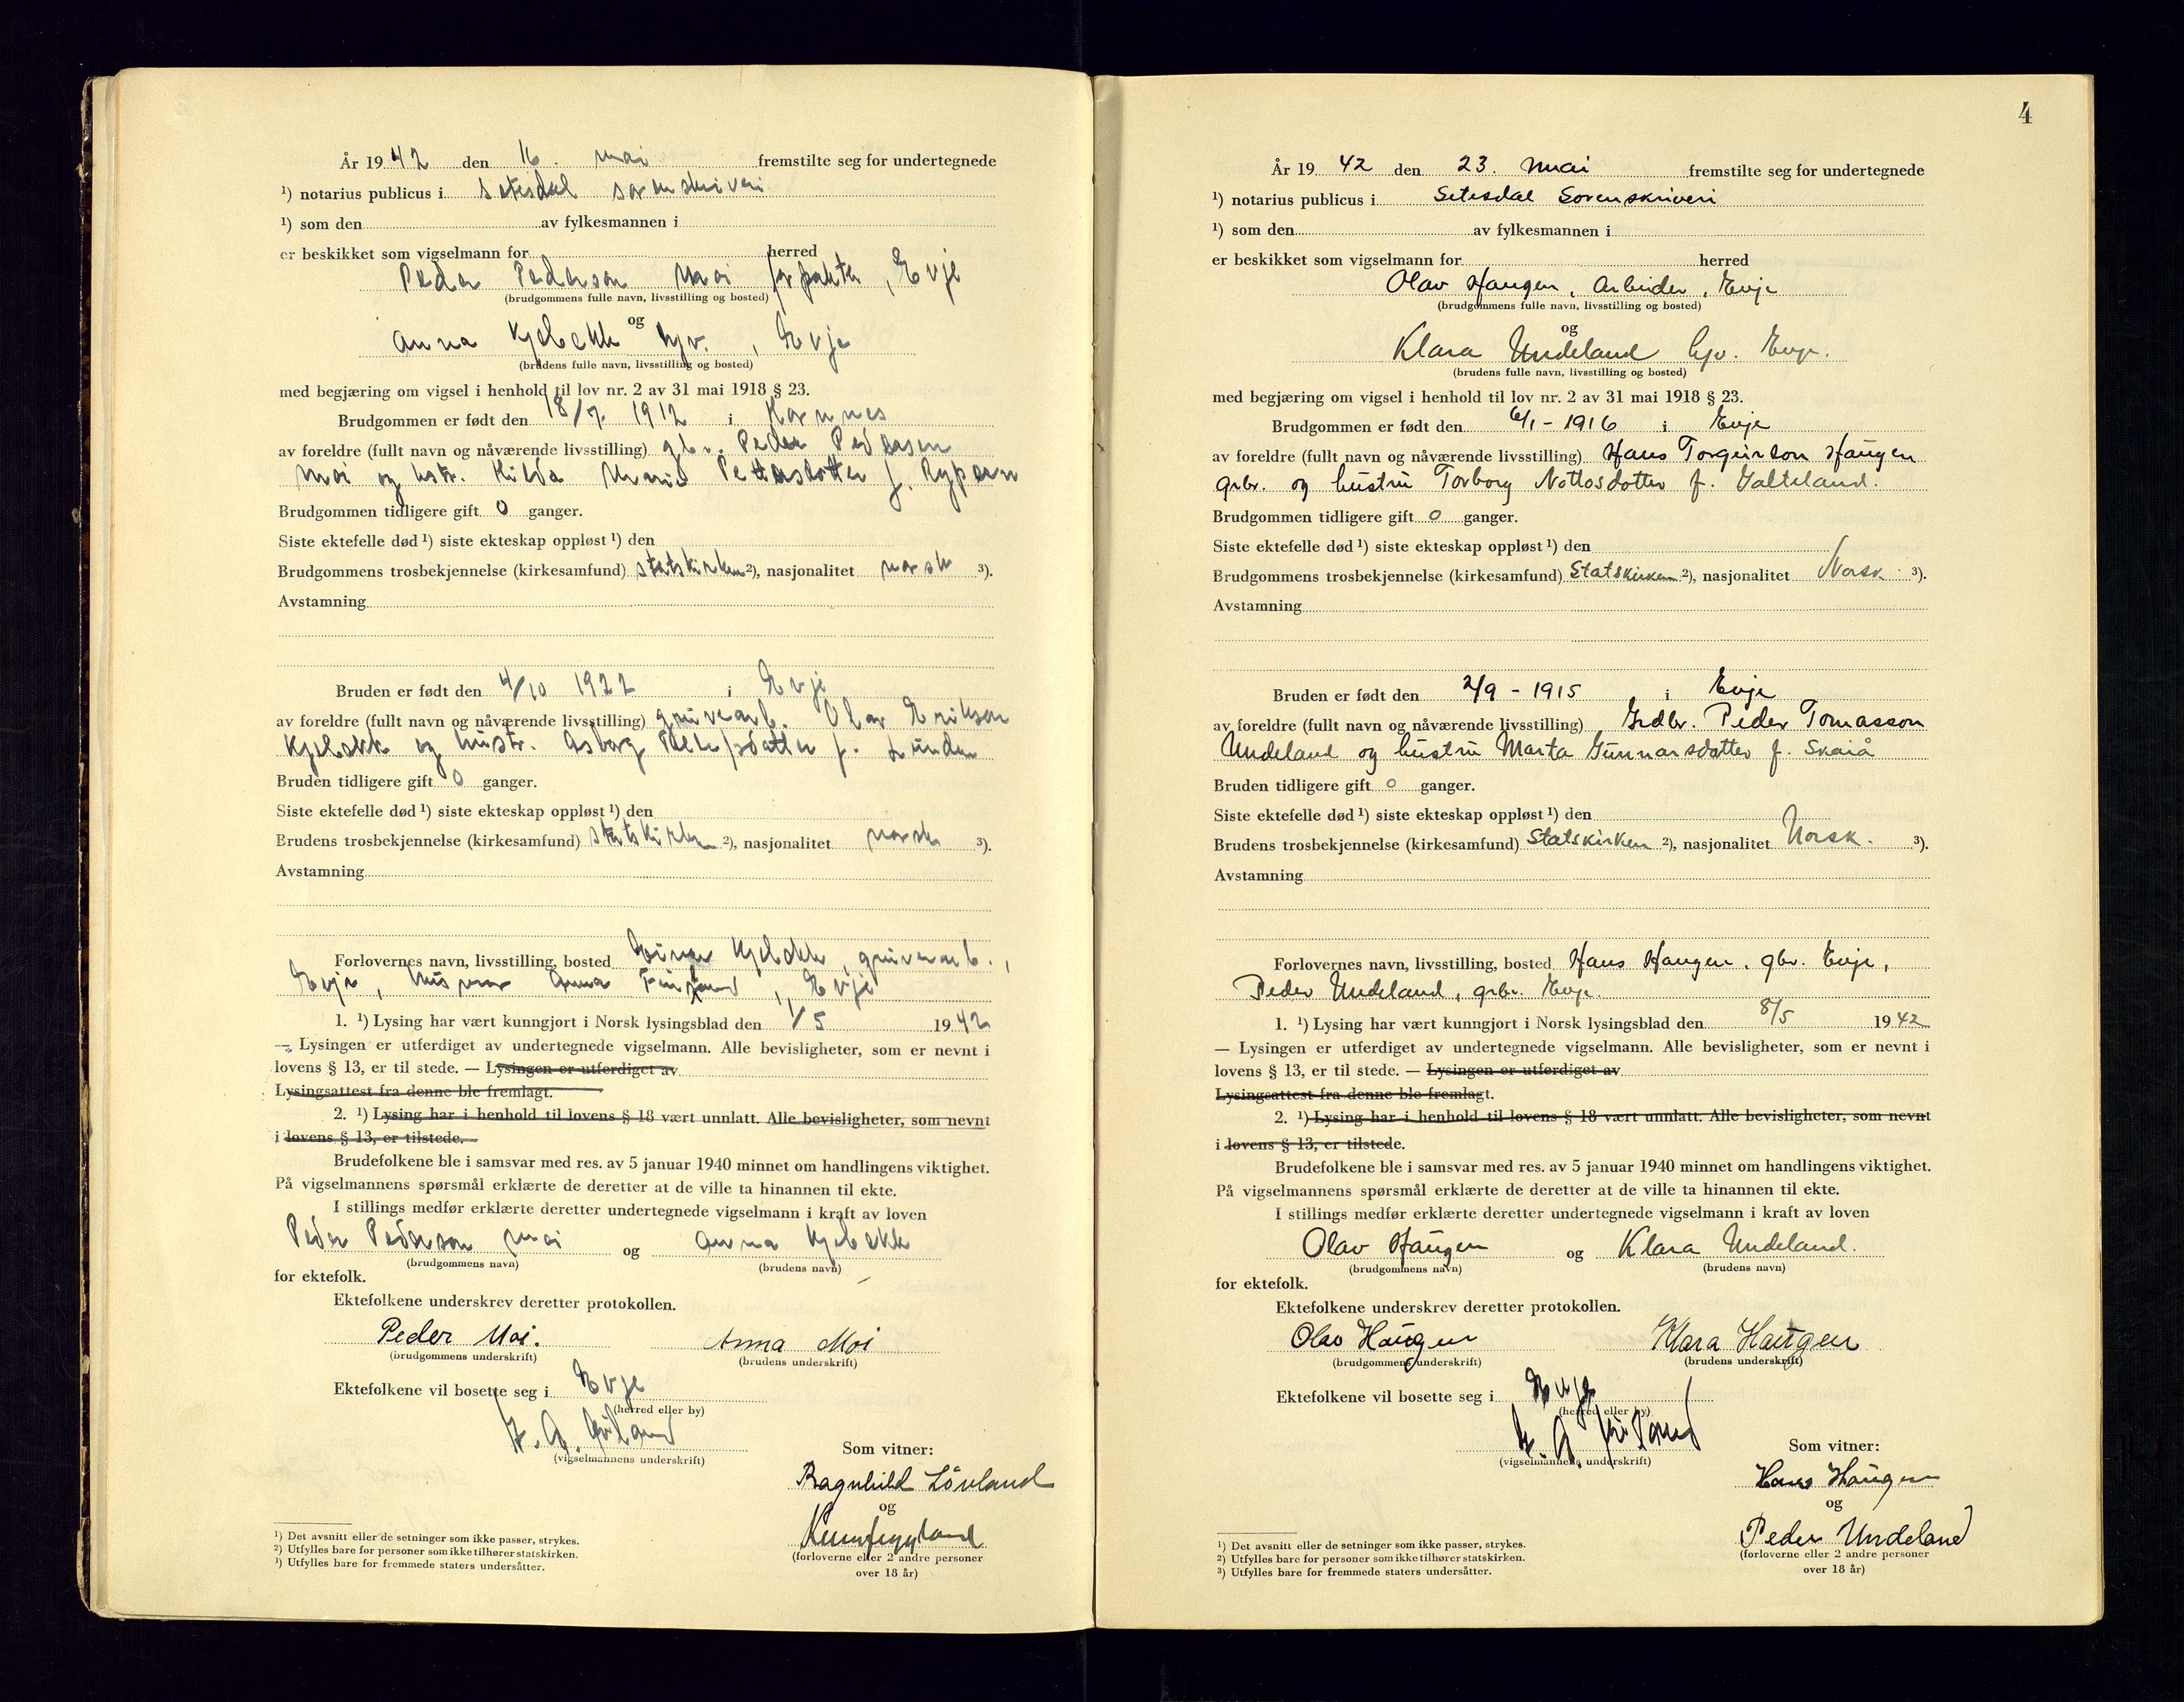 År 1942 den 16. mai fremstilte seg for undertegnede
¹) notarius publicus i Setesdal sorenskriveri
¹) som den av fylkesmannen i
er beskikket som vigselmann for herred
Peder Pederson Moi forpakter, Evje
(brudgommens fulle navn, livsstilling og bosted)
og
Anna Kjebekk hjv., Evje
(brudens fulle navn, livsstilling og bosted)
med begjæring om vigsel i henhold til lov nr. 2 av 31 mai 1918 § 23.
Brudgommen er født den 18/7 1912 i Hornnes
av foreldre (fullt navn og nåværende livsstilling) gbr. Peder Pedersen
Moi og hstr. Hilda Marie f. Rypern
Brudgommen tidligere gift 0 ganger.
Siste ektefelle død ¹) siste ekteskap oppløst ¹) den
Brudgommens trosbekjennelse (kirkesamfund) statskirken ²), nasjonalitet norsk ³).
Avstamning
Bruden er født den 4/10 1922 i Evje
av foreldre (fullt navn og nåværende livsstilling) gruvearb. Olav Erikson
Kjebekk og hustr. Asborg f. Lunden
Bruden tidligere gift 0 ganger.
Siste ektefelle død ¹) siste ekteskap oppløst ¹) den
Brudens trosbekjennelse (kirkesamfund) statskirken ²), nasjonalitet norsk ³).
Avstamning
Forlovernes navn, livsstilling, bosted Einar Kjebekk, gruvearb.,
Evje, husmor Anna , Evje
1. ¹) Lysing har vært kunngjort i Norsk lysingsblad den 1/5 1942
— Lysingen er utferdiget av undertegnede vigselmann. Alle bevisligheter, som er nevnt i
lovens § 13, er til stede. — Lysingen er utferdiget av
Lysingsattest fra denne ble fremlagt.
2. ¹) Lysing har i henhold til lovens § 18 vært unnlatt. Alle bevisligheter, som nevnt
i lovens § 13, er tilstede.
Brudefolkene ble i samsvar med res. av 5 januar 1940 minnet om handlingens viktighet.
På vigselmannens spørsmål erklærte de deretter at de ville ta hinannen til ekte.
I stillings medfør erklærte deretter undertegnede vigselmann i kraft av loven
Peder Pederson Moi og Anna Kjebekk
(brudgommens navn) (brudens navn)
for ektefolk.
Ektefolkene underskrev deretter protokollen.
Peder Moi. Anna Moi
(brudgommens underskrift) (brudens underskrift)
Ektefolkene vil bosette seg i Evje
(herred eller by)
(vigselmannens underskrift)
Som vitner:
Ragnhild Lövland
og
(forloverne eller 2 andre personer
over 18 år)
¹) Det avsnitt eller de setninger som ikke passer, strykes.
²) Utfylles bare for personer som ikke tilhører statskirken.
³) Utfylles bare for fremmede staters undersåtter.
4
År 1942 den 23. mai fremstilte seg for undertegnede
¹) notarius publicus i Setesdal Sorenskriveri
¹) som den av fylkesmannen i
er beskikket som vigselmann for herred
Olav Haugen, Arbeider, Evje
(brudgommens fulle navn, livsstilling og bosted)
og
Klara Undeland hjv. Evje.
(brudens fulle navn, livsstilling og bosted)
med begjæring om vigsel i henhold til lov nr. 2 av 31 mai 1918 § 23.
Brudgommen er født den 6/1 - 1916 i Evje
av foreldre (fullt navn og nåværende livsstilling) Hans Torgeirson Haugen
gbr. og hustru Torborg Nottosdotter f. Galteland.
Brudgommen tidligere gift 0 ganger.
Siste ektefelle død ¹) siste ekteskap oppløst ¹) den
Brudgommens trosbekjennelse (kirkesamfund) Statskirken ²), nasjonalitet Norsk ³).
Avstamning
Bruden er født den 2/9 - 1915 i Evje
av foreldre (fullt navn og nåværende livsstilling) Grdbr. Peder Tomasson
Undeland og hustru Marta Gunnarsdotter f. Skaiå
Bruden tidligere gift 0 ganger.
Siste ektefelle død ¹) siste ekteskap oppløst ¹) den
Brudens trosbekjennelse (kirkesamfund) Statskirken ²), nasjonalitet Norsk. ³).
Avstamning
Forlovernes navn, livsstilling, bosted Hans Haugen, gbr. Evje,
Peder Undeland, gbr. Evje.
1. ¹) Lysing har vært kunngjort i Norsk lysingsblad den 8/5 1942
— Lysingen er utferdiget av undertegnede vigselmann. Alle bevisligheter, som er nevnt i
lovens § 13, er til stede. — Lysingen er utferdiget av
Lysingsattest fra denne ble fremlagt.
2. ¹) Lysing har i henhold til lovens § 18 vært unnlatt. Alle bevisligheter, som nevnt
i lovens § 13, er tilstede.
Brudefolkene ble i samsvar med res. av 5 januar 1940 minnet om handlingens viktighet.
På vigselmannens spørsmål erklærte de deretter at de ville ta hinannen til ekte.
I stillings medfør erklærte deretter undertegnede vigselmann i kraft av loven
Olav Haugen og Klara Undeland.
(brudgommens navn) (brudens navn)
for ektefolk.
Ektefolkene underskrev deretter protokollen.
Olav Haugen Klara Haugen
(brudgommens underskrift) (brudens underskrift)
Ektefolkene vil bosette seg i Evje
(herred eller by)
(vigselmannens underskrift)
Som vitner:
Hans Haugen
og
Peder Undeland
(forloverne eller 2 andre personer
over 18 år)
¹) Det avsnitt eller de setninger som ikke passer, strykes.
²) Utfylles bare for personer som ikke tilhører statskirken.
³) Utfylles bare for fremmede staters undersåtter.